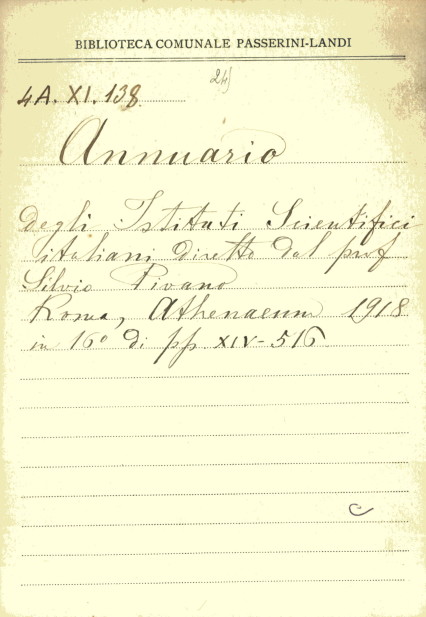 BIBLIOTECA COMUNALE PASSERINI-LANDI
24)
4A. XI. 138.
Annuario
degli Istituti Scientifici
italiani diretto dal prof
Silvio Pivano
Roma, Athenaeum 1918
in 16º di pp XIV-516.
c